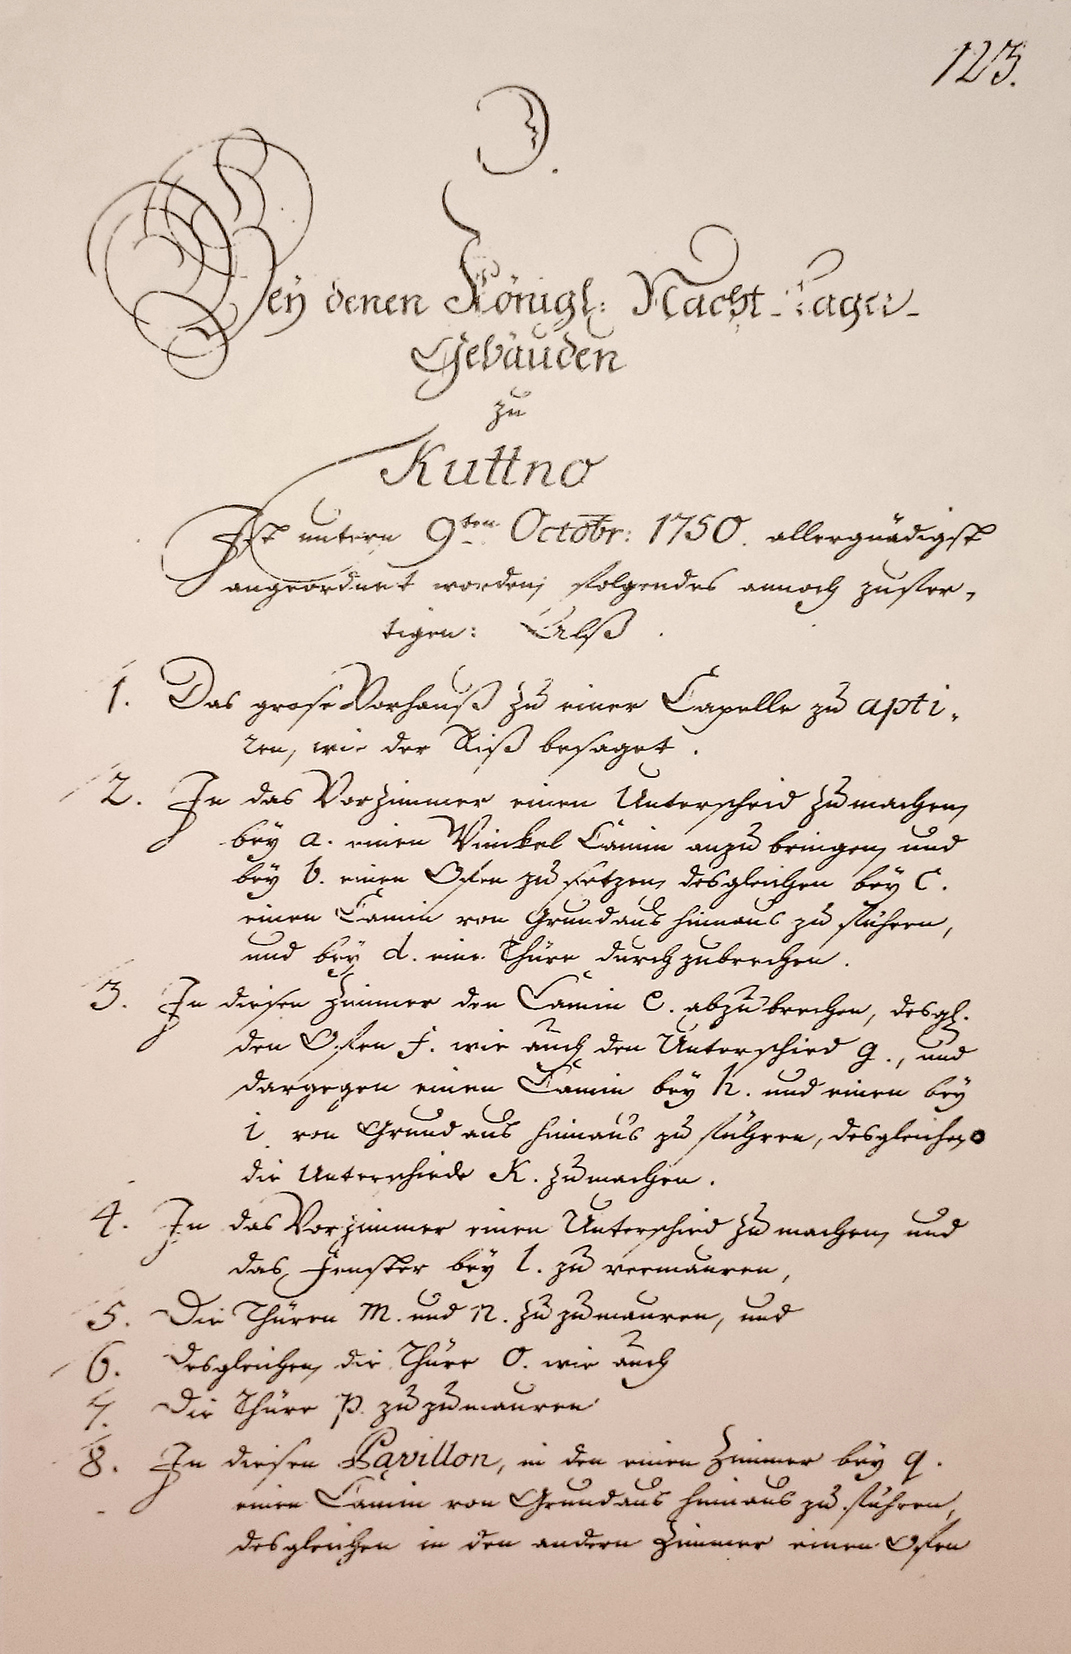 123.
D.
Bey denen Königl: Nacht-Lager-
Gebäuden
zu
Kuttno
Ist untern 9ten Octobr: 1750. allergnädigst
angeordnet worden, folgendes annoch zufer-
tigen: Alß
1. Das grose Vorhauß zu einer Capelle zu apti-
ren, wie der Riß besaget.
2. In das Vorzimmer einen Unterscheid zu machen,
bey a. einen Winckel Camin anzubringen, und
bey b. einen Ofen zu setzen, desgleichen bey c.
einen Camin von Grund aus hinaus zu führen,
und bey d. eine Thüre durchzubrechen.
3. In diesen Zimmer den Camin e. abzubrechen, desgl.
den Ofen f. wie auch den Unterschied g., und
dargegen einen Camin bey h. und einen bey
i. von Grund aus hinaus zu führen, desgleichen
die Unterschiede K. zu machen.
4. In das Vorzimmer einen Unterschied zu machen, und
das Fenster bey l. zu vermauren,
5. Die Thüren m. und n. zu zumauren, und
6. desgleichen, die Thüre o. wie auch
7. die Thüre p. zu zumauren
8. In diesen Pavillon, in den einen Zimmer bey q.
einen Camin von Grund aus hinaus zu führen,
desgleichen in den andern Zimmer einen Ofen